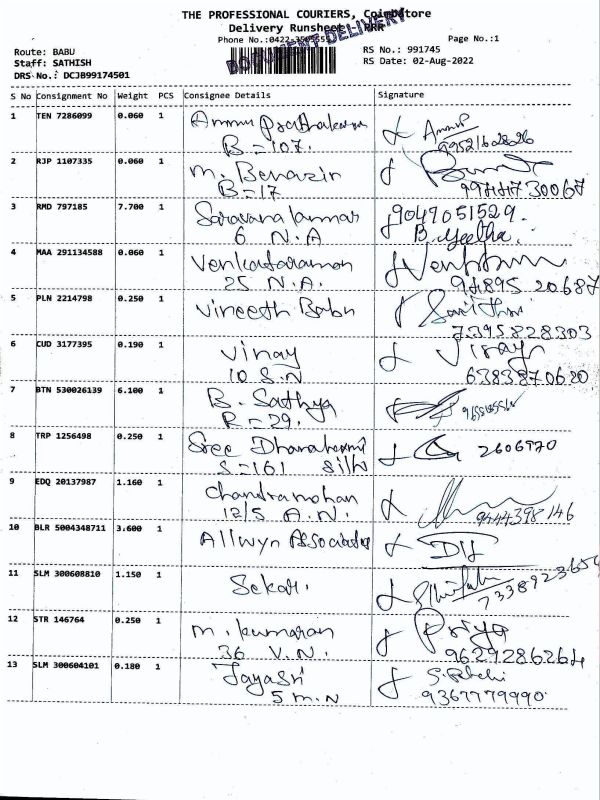 THE PROFESSIONAL COURIERS, Coimbatore
Delivery Runsheet PRR
Phone No.:0422- Page No.:1
DOCUMENT DELIVERY
Route: BABU RS No.: 991745
Staff: SATHISH RS Date: 02-Aug-2022
DRS No.: DCJB99174501
S No Consignment No Weight PCS Consignee Details Signature
1 TEN 7286099 0.060 1 Ammu Prathakaran
B=107.
99521602826
2 RJP 1107335 0.060 1 M. Benazir
B=17
9944730067
3 RMD 797185 7.700 1 Saravana kumar 9047051529.
6 N.A B. Geetha.
4 MAA 291134588 0.060 1 Venkataraman
25 N.A. 94895 20687
5 PLN 2214798 0.250 1 Vineeth Babu
7395828303
6 CUD 3177395 0.190 1 Vinay
10 S.N 6383870620
7 BTN 530026139 6.100 1 B. Sathya
R=29.
8 TRP 1256498 0.250 1 Sree Dhanalaxmi 2606970
S=161 Silk
9 EDQ 20137987 1.160 1 Chandramohan
12/5 A.N. 9444398146
10 BLR 5004348711 3.600 1 Allwyn Associates
11 SLM 300608810 1.150 1 Sekar.
7338923654
12 STR 146764 0.250 1 M. Kumaran Priya
36 V.N. 9629286264
13 SLM 300604101 0.180 1 Jayasri
5 M.N 9367779990